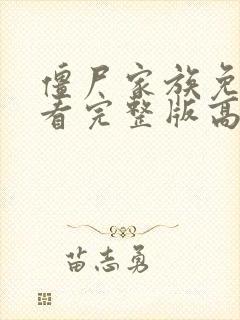 僵尸家族免
看完整版高
苗志勇